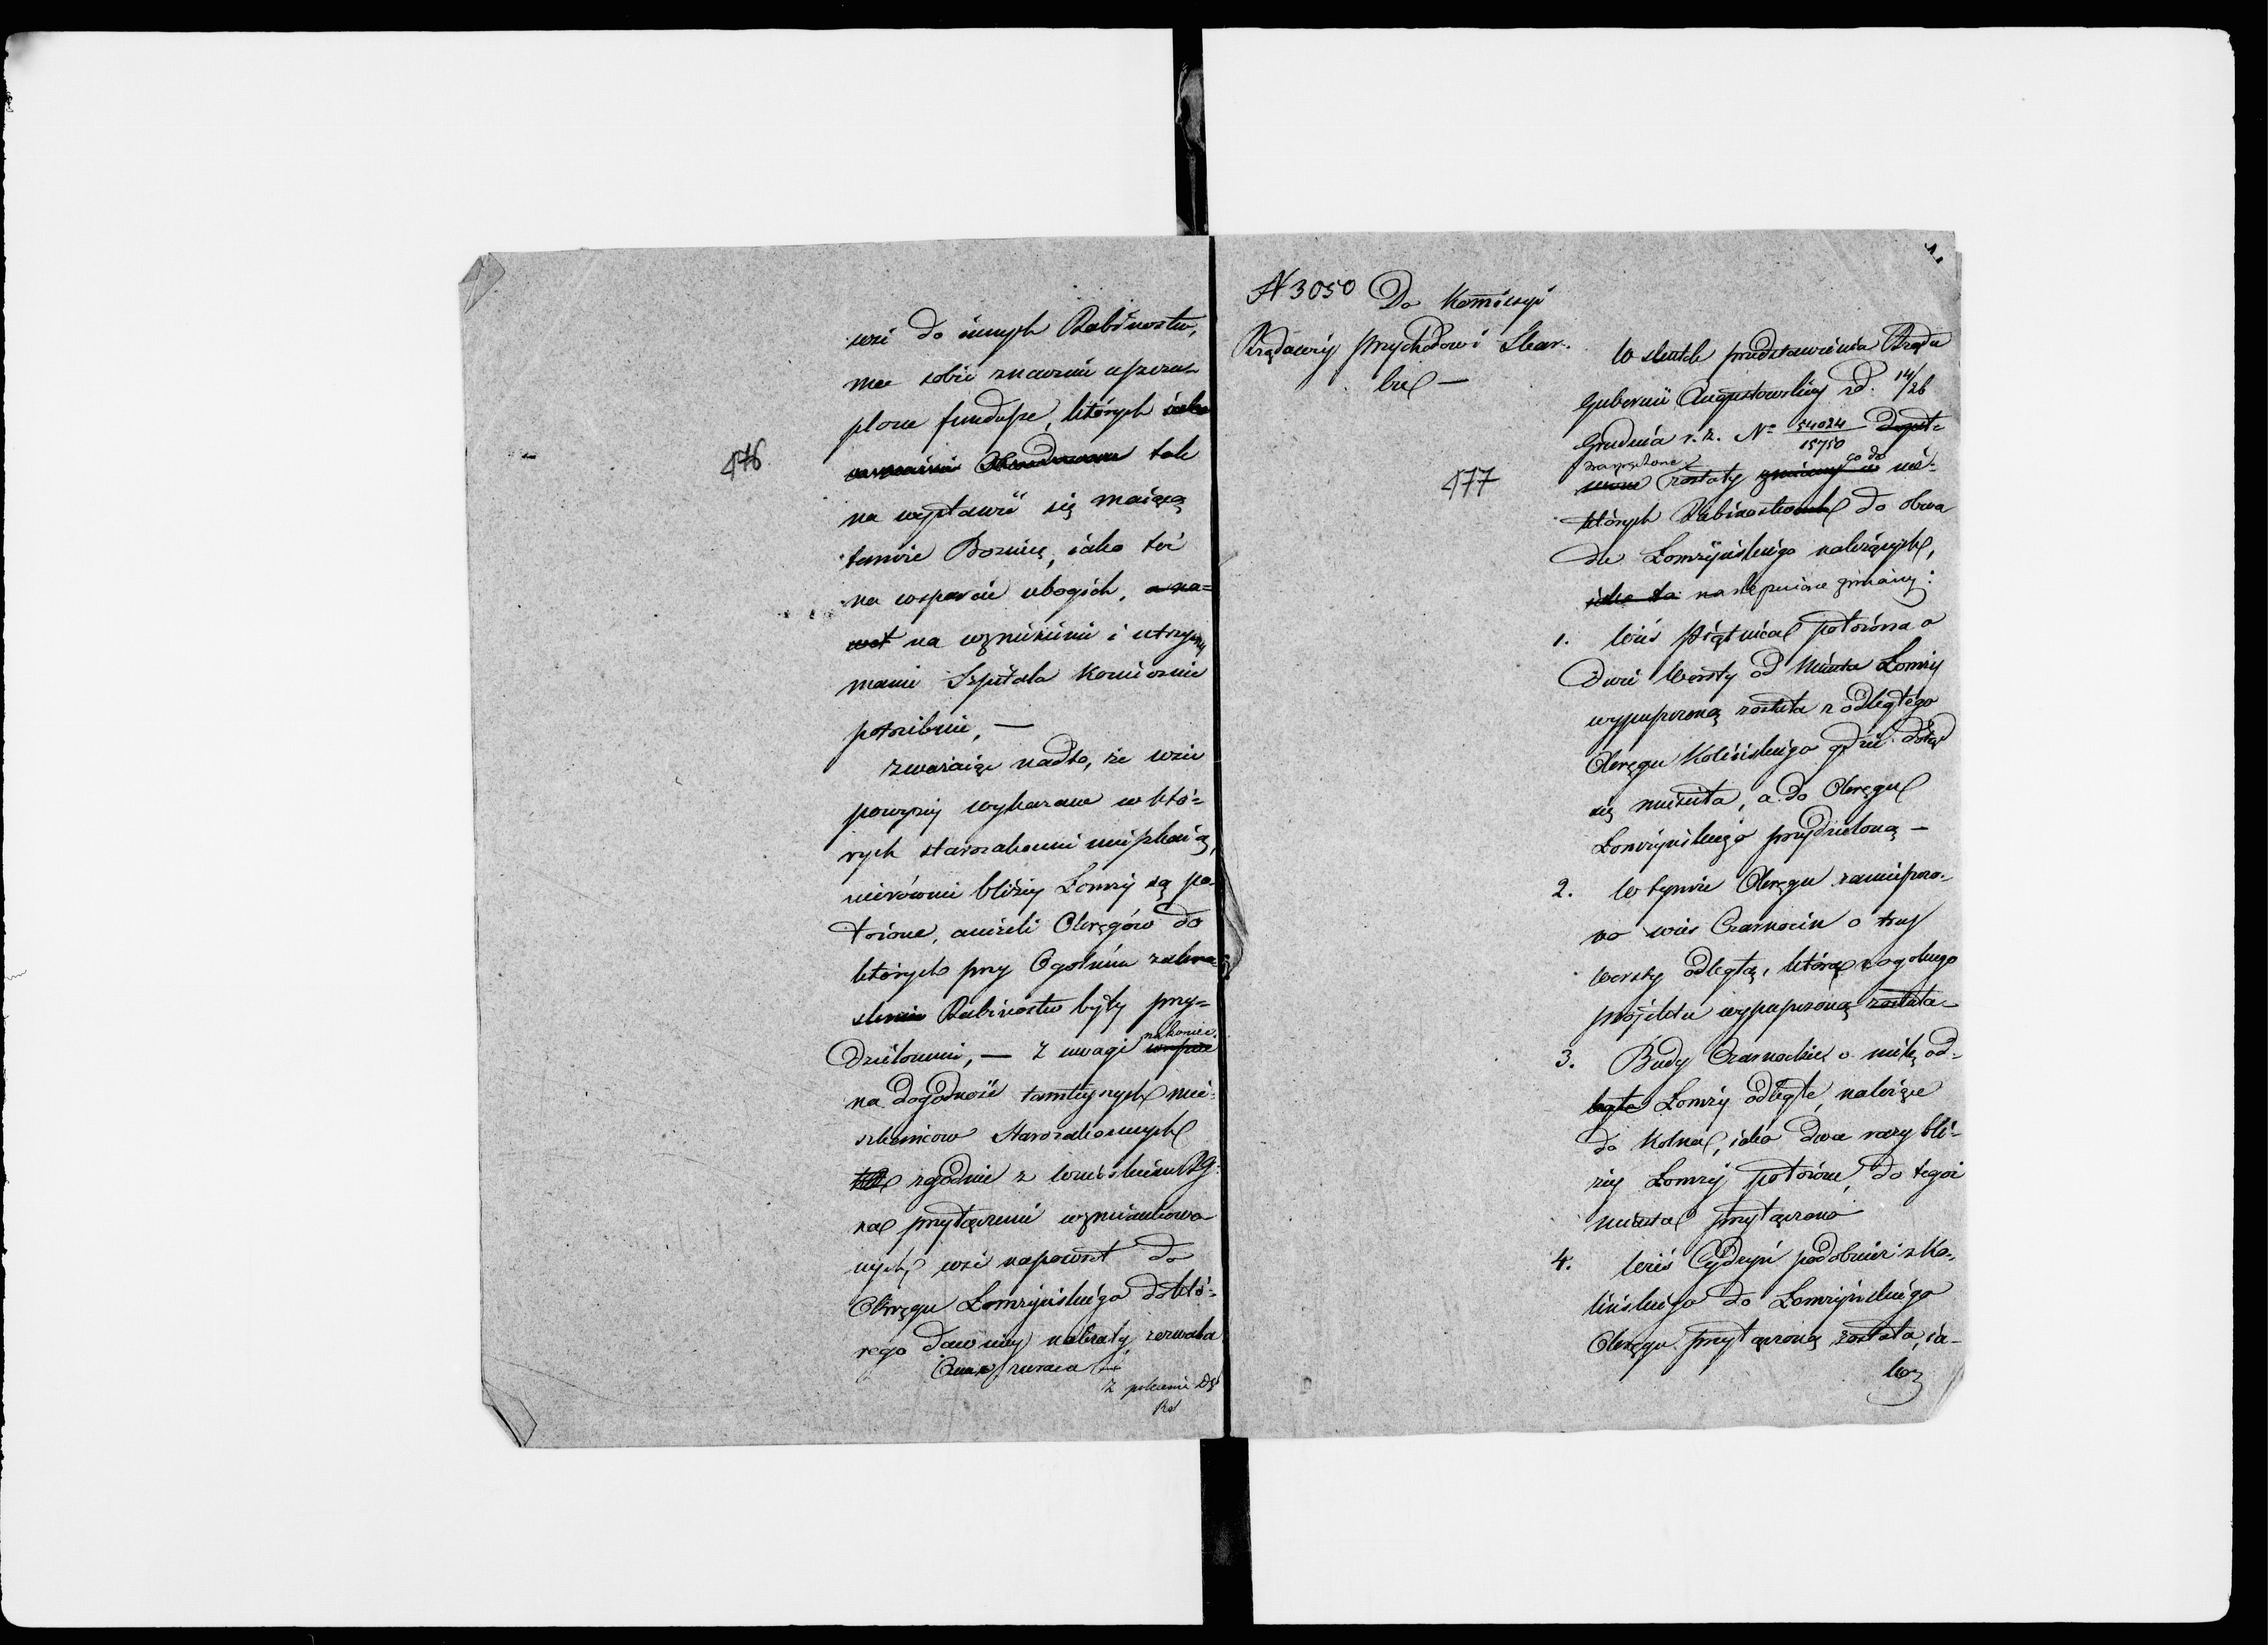 476
wsi do innych Rabinostw,
ma sobie znacznie uszczu-
plone fundusze, których
tak
na wystawić się mającą
tamże Boznicę, jako też
na wsparcie ubogich, a na=
wet na wzniesienie i utrzy-
manie Szpitala koniecznie
potrzebuie, —
Zważaiąc nadto, że wsie
powyżej wykazane w któ=
rych starozakonni mieszkaią,
nierównie bliżej Łomży są po-
łożone, aniżeli Okręgów do
których przy Ogólném zakre-
śleniu Rabinostw były przy=
dzielonemi, — z uwagi nakoniec
na dogodność tamtejszych mie-
szkańców Starozakonnych
zgodnie z wnioskiem RG.
na przyłączenie wzmiankowa-
nych wsi napowrót do
Okręgu Łomżyńskiego do któ=
rego dawniej należały, zezwala
i
z polecenia
N 3050 Do Kommissyi
Rządowéj Przychodów i Skar-
bu —
477
1.
W skutek przedstawienia Rządu
Gubernii Augustowskiej z d. 14/26
Grudnia r. z. No 54024/15750
zaszły zostały co do nie=
których Rabinostwach do obwo
du Łomżyńskiego należących,
jako to następuiące zmiany:
1. Wieś Piątnica położona o
dwie Wersty od Miasta Łomży
wypuszczoną została z odległego
Okręgu Kolińskiego gdzie dotąd
się mieściła, a do Okręgu
Łomżyńskiego przydzieloną —
2. W tymże Okręgu zamieszczo-
no wieś Czarnocin o trzy
Wersty odległą, którą z ogolnego
projektu wypuszczoną została —
3. Budy Czarnockie o milę od=
legte Łomży odległe, należące
do Kolna, jako dwa razy bli-
żej Łomży położone, do tegoż
miasta przyłączono
4. Wieś Cydzyń podobnież z Ko-
lińskiego do Łomżyńskiego
Okręgu przyłączoną została, ja-
ko